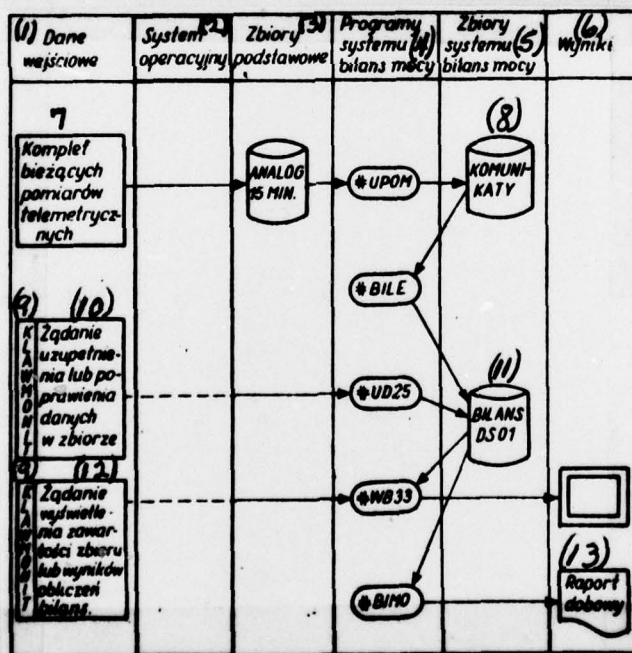 (1) Dane
wejściowe
System (2)
operacyjny
Zbiory (3)
podstawowe
Programy
systemu (4)
bilans mocy
Zbiory
systemu (5)
bilans mocy
(6)
Wyniki
7
Komplet
bieżących
pomiarów
telemetrycz-
nych
ANALOG
15 MIN.
*UPOM
(8)
KOMUNI-
KATY
*BILE
(9) (10)
KLAWMONIT
Żądanie
uzupełnie-
nia lub po-
prawienia
danych
w zbiorze
*UD25
(11)
BILANS
DS01
(9) (12)
KLAWMONIT
Żądanie
wyświetle-
nia zawar-
tości zbioru
lub wyników
obliczeń
bilans.
*WB33
*BIMO
(13)
Raport
dobowy